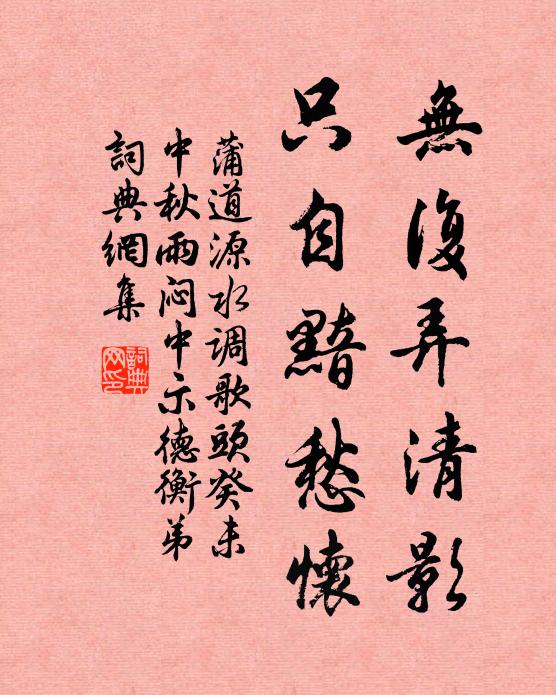 無復弄清影
只自黯愁懷
蒲道源水调歌頭癸未
中秋雨闷中示德衡弟
詞典網集
詞典網印